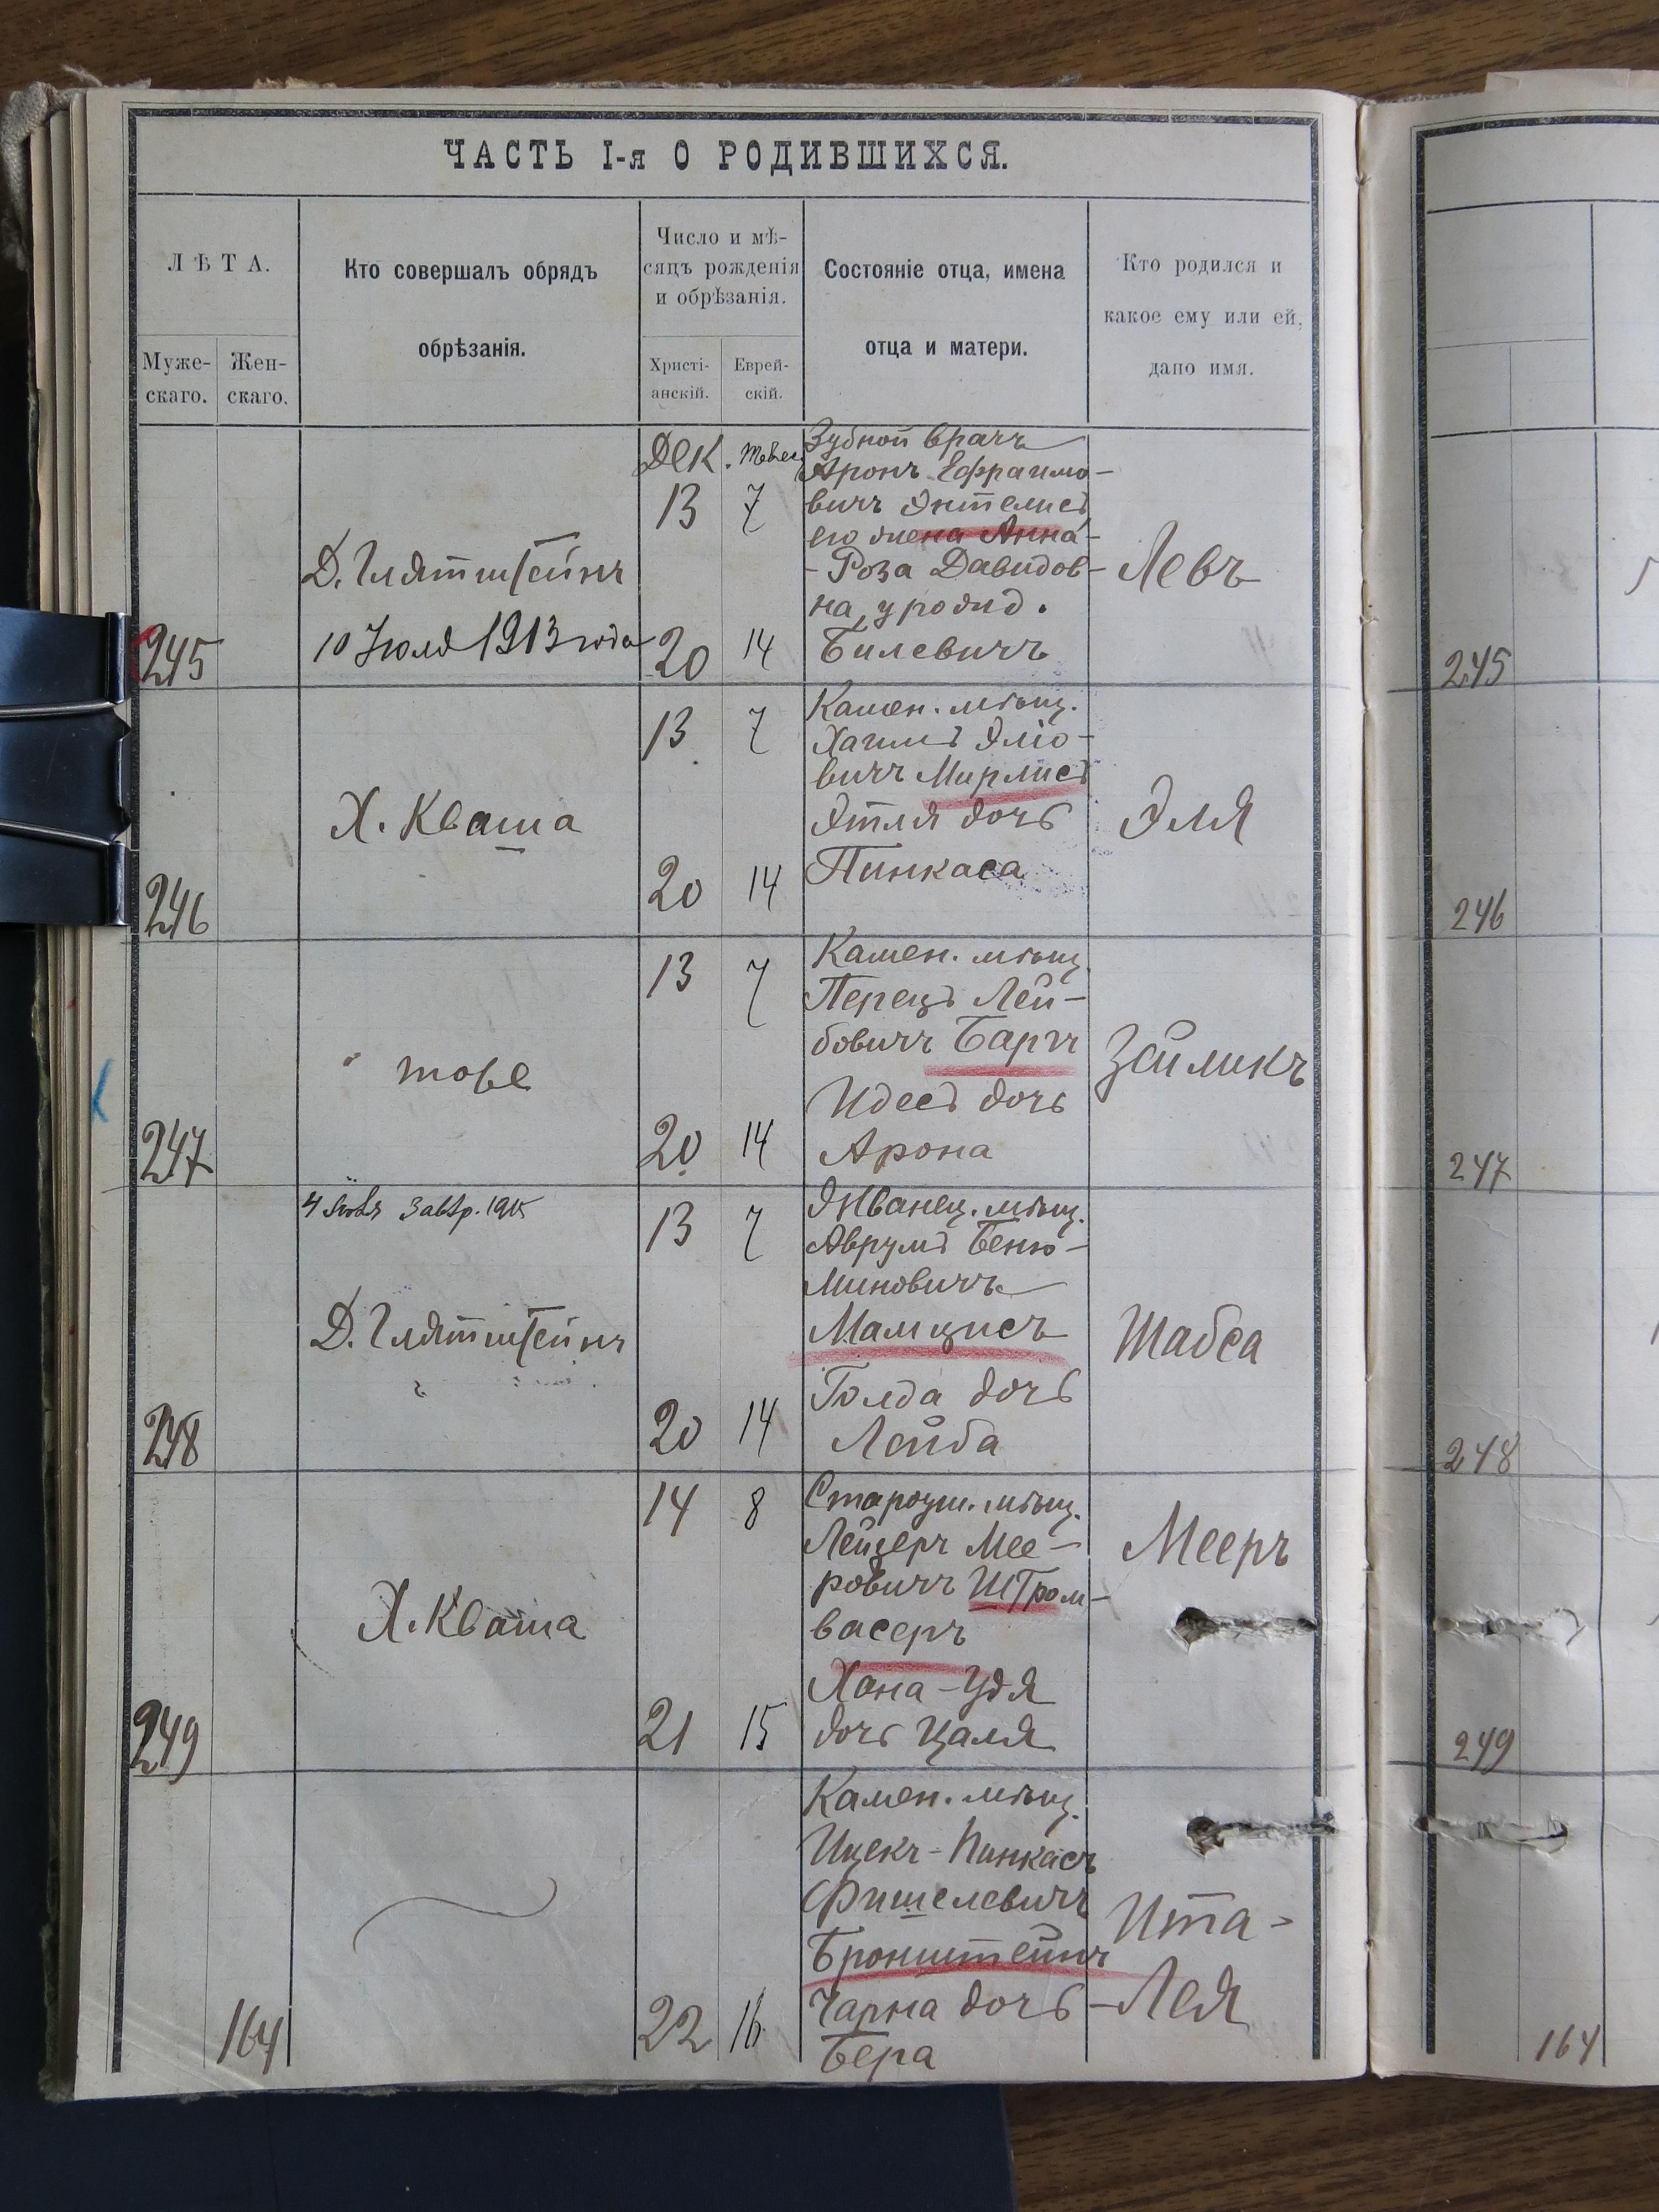 ЧАСТЬ I-я О РОДИВШИХСЯ.
ЛѢТА.
Муже-
скаго.
Жен-
скаго.
Кто совершалъ обрядъ
обрѣзанія.
Число и мѣ-
сяцъ рожденія
и обрѣзанія.
Христі-
анскій.
Еврей-
скій.
Состояніе отца, имена
отца и матери.
Кто родился и
какое ему или ей,
дано имя.
245
Д. Глятштейнъ
10 Іюля 1913 года
Дек.
13
20
Тевес
7
14
Зубной врачъ
Аронъ Ефраимо-
вичъ Энтелисъ
его жена Анна-
-Роза Давидов-
на, урожд.
Билевичъ
Левъ
245
246
Х. Кваша
13
20
7
14
Камен. мѣщ.
Хаимъ Эліо-
вичъ Мирлисъ
Этля дочь
Пинкаса
Эля
246
247
тоже
13
20
7
14
Камен. мѣщ.
Перецъ Лей-
бовичъ Баргъ
Идесъ дочь
Арона
Зейликъ
247
248
Д. Глятштейнъ
13
20
7
14
Жванец. мѣщ.
Аврумъ Беню-
миновичъ
Мамцисъ
Голда дочь
Лейба
Шабса
248
249
Х. Кваша
14
21
8
15
Староуш. мѣщ.
Лейзеръ Мее-
ровичъ Штром-
васеръ
Хана-Удя
дочь Цаля
Мееръ
249
164
22
16
Камен. мѣщ.
Ицекъ-Пинкасъ
Фишелевичъ
Бронштейнъ
Чарна дочь
Бера
Ита-
-Лея
164